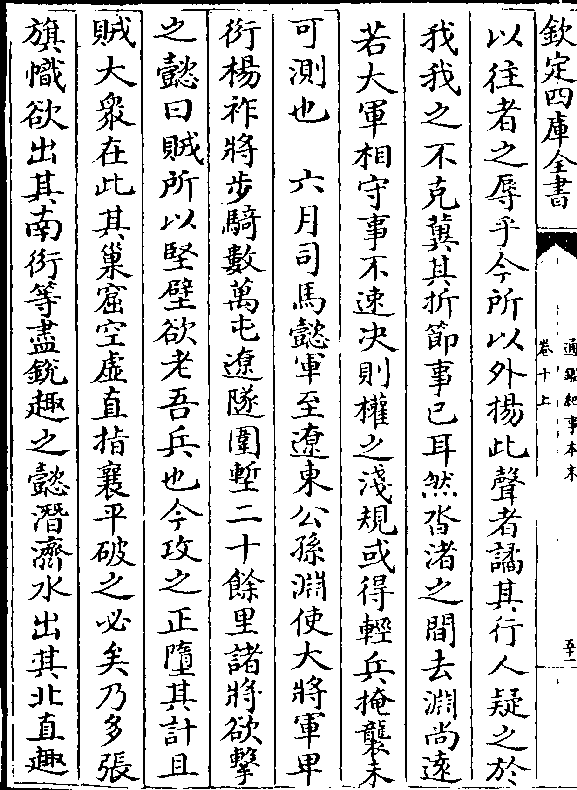 欽定四庫全書
通鑑紀事本末
卷十上
至二
以往者之辱乎今所以外揚此聲者譎其行人疑之於
我我之不克冀其折節事已耳然沓渚之間去淵尚遠
若大軍相守事不速决則權之淺規或得輕兵掩襲未
可測也　六月司馬懿軍至遼東公孫淵使大將軍畀
衍楊祚將步騎數萬屯遼隧圍塹二十餘里諸將欲擊
之懿曰賊所以堅壁欲老吾兵也今攻之正墮其計且
賊大衆在此其巢窟空虚直指襄平破之必矣乃多張
旗幟欲出其南衍等盡銳趣之懿潛濟水出其北直趣